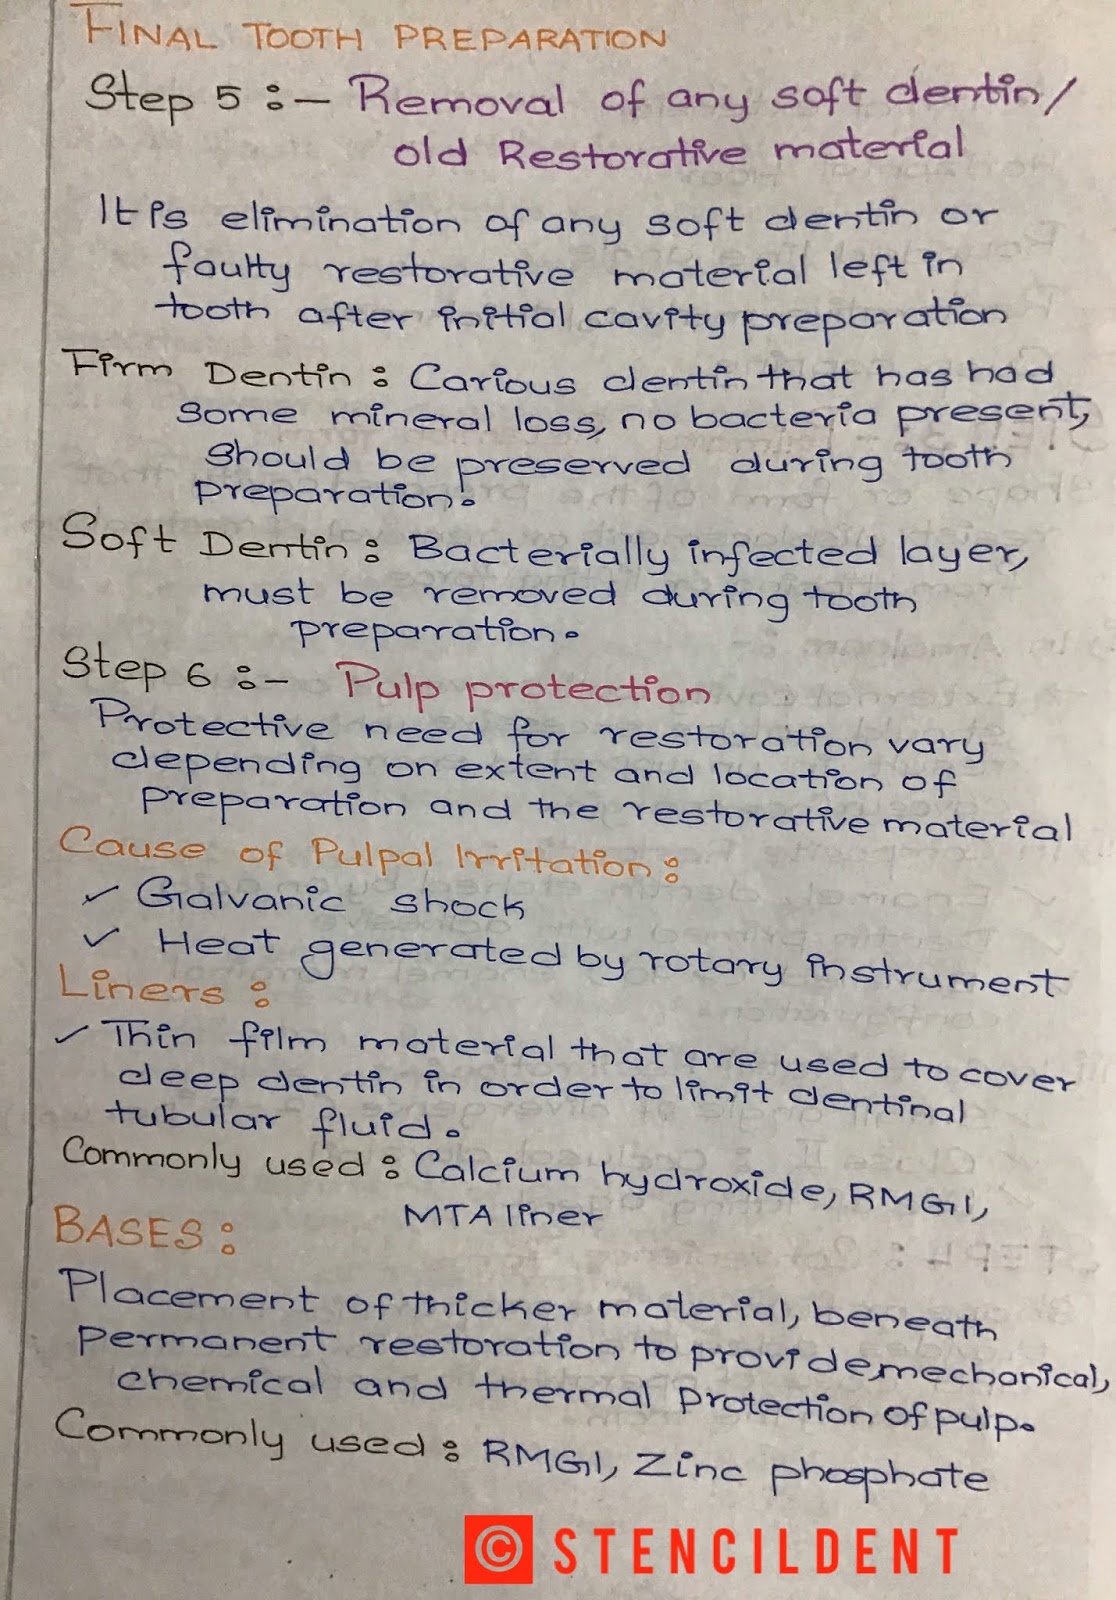 FINAL TOOTH PREPARATION
Step 5 :- Removal of any soft dentin/
old Restorative material
It is elimination of any soft dentin or
faulty restorative material left in
tooth after initial cavity preparation
Firm Dentin : Carious dentin that has had
some mineral loss, no bacteria present,
should be preserved during tooth
preparation.
Soft Dentin : Bacterially infected layer,
must be removed during tooth
preparation.
Step 6 :- Pulp protection
Protective need for restoration vary
depending on extent and location of
preparation and the restorative material
Cause of Pulpal Irritation :
✓ Galvanic shock
✓ Heat generated by rotary instrument
Liners :
✓ Thin film material that are used to cover
deep dentin in order to limit dentinal
tubular fluid.
Commonly used : Calcium hydroxide, RMGI,
MTA liner
BASES :
Placement of thicker material, beneath
permanent restoration to provide mechanical,
chemical and thermal Protection of pulp.
Commonly used : RMGI, Zinc phosphate
© STENCILDENT